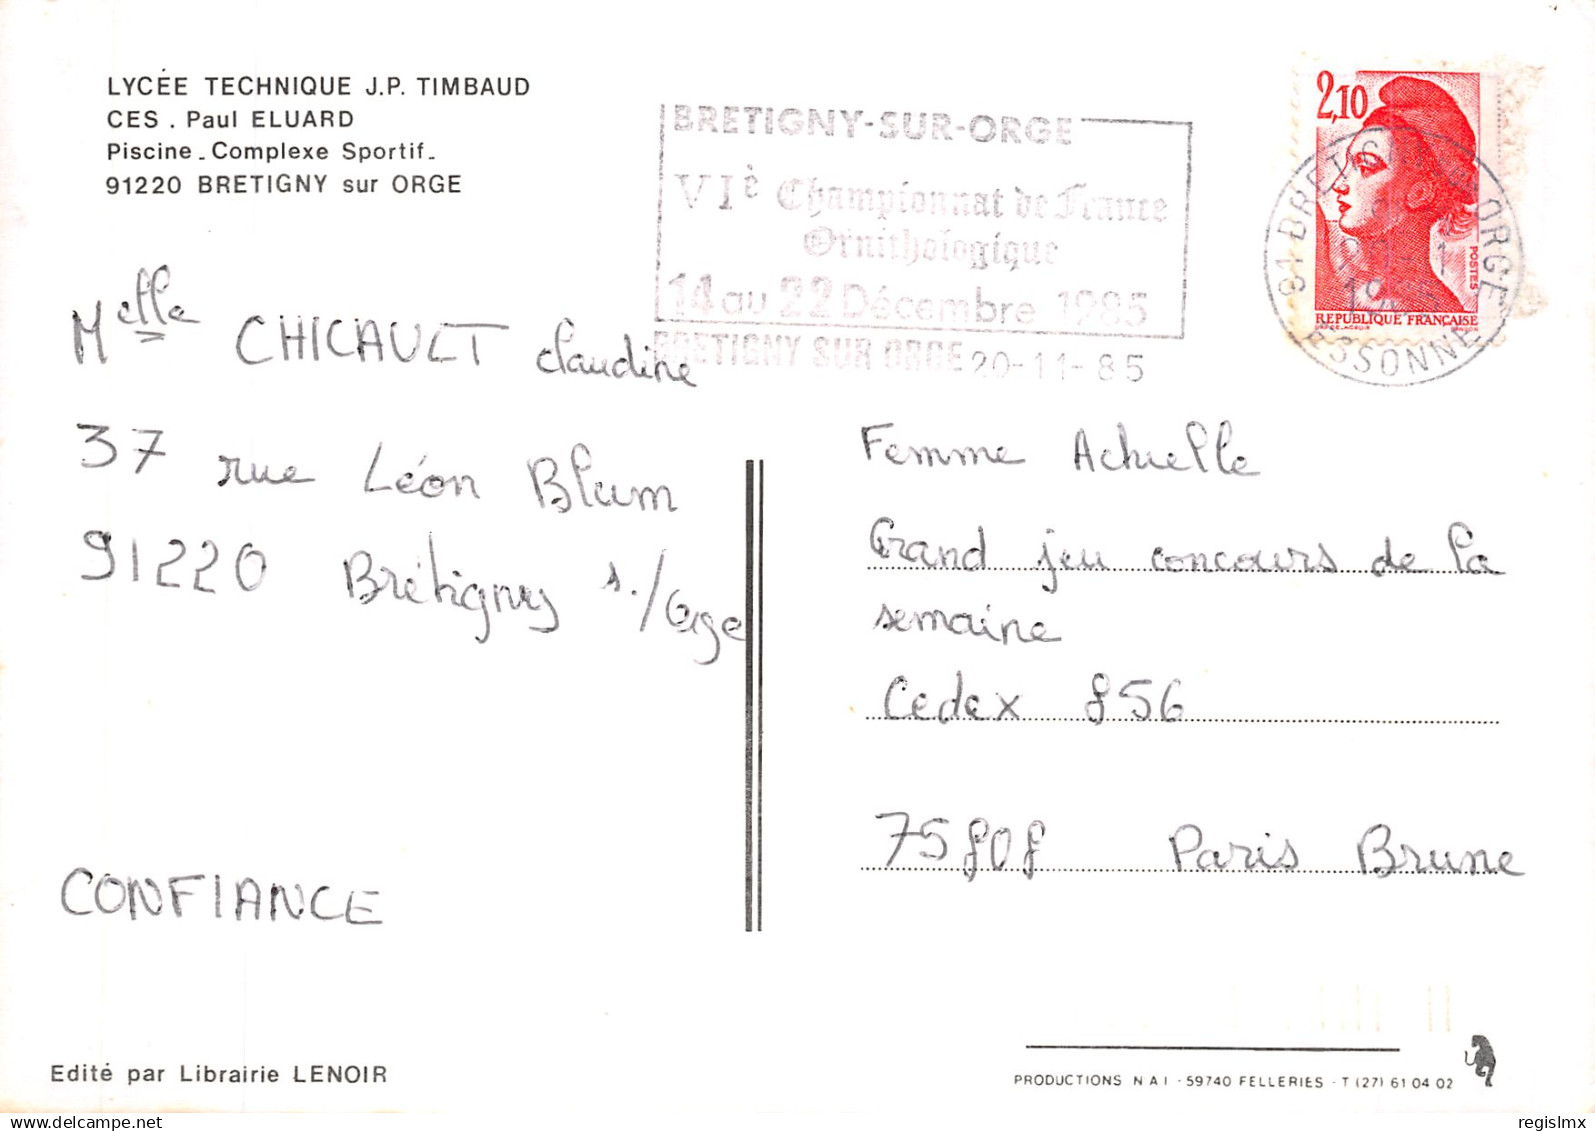 LYCÉE TECHNIQUE J.P. TIMBAUD
CES . Paul ELUARD
Piscine - Complexe Sportif -
91220 BRETIGNY sur ORGE
BRETIGNY-SUR-ORGE
VIè Championnat de France
Ornithologique
14 au 22 Décembre 1985
BRETIGNY SUR ORGE 20-11-85
2,10
POSTES
REPUBLIQUE FRANÇAISE
91 BRETIGNY ORGE
ESSONNE
Melle CHICAULT Claudine
37 rue Léon Blum
91220 Brétigny s./Orge
CONFIANCE
Femme Actuelle
Grand jeu concours de la
semaine
Cedex 856
75808 Paris Brune
Edité par Librairie LENOIR
PRODUCTIONS N A I - 59740 FELLERIES - T (27) 61 04 02
regislmx